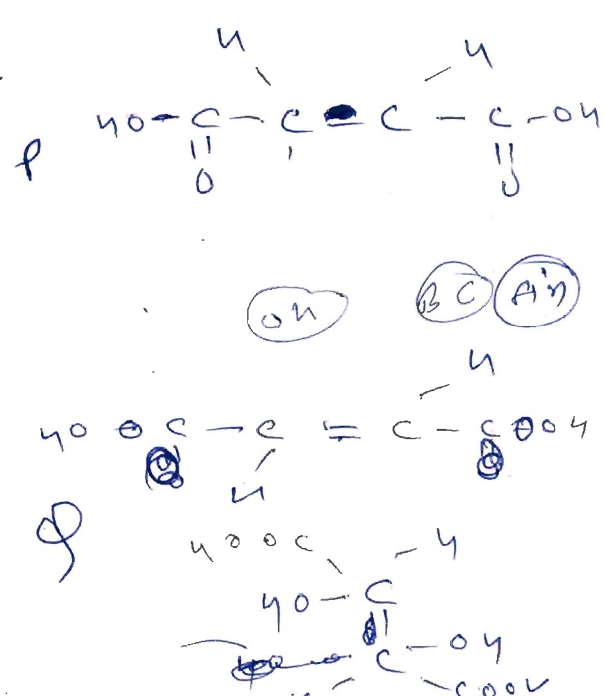 H H
HO - C - C = C - C - OH
P
O O
OH BC A'n
H
HOOC - C = C - COOH
H
Q
HOOC H
HO - C
C - OH
COOH